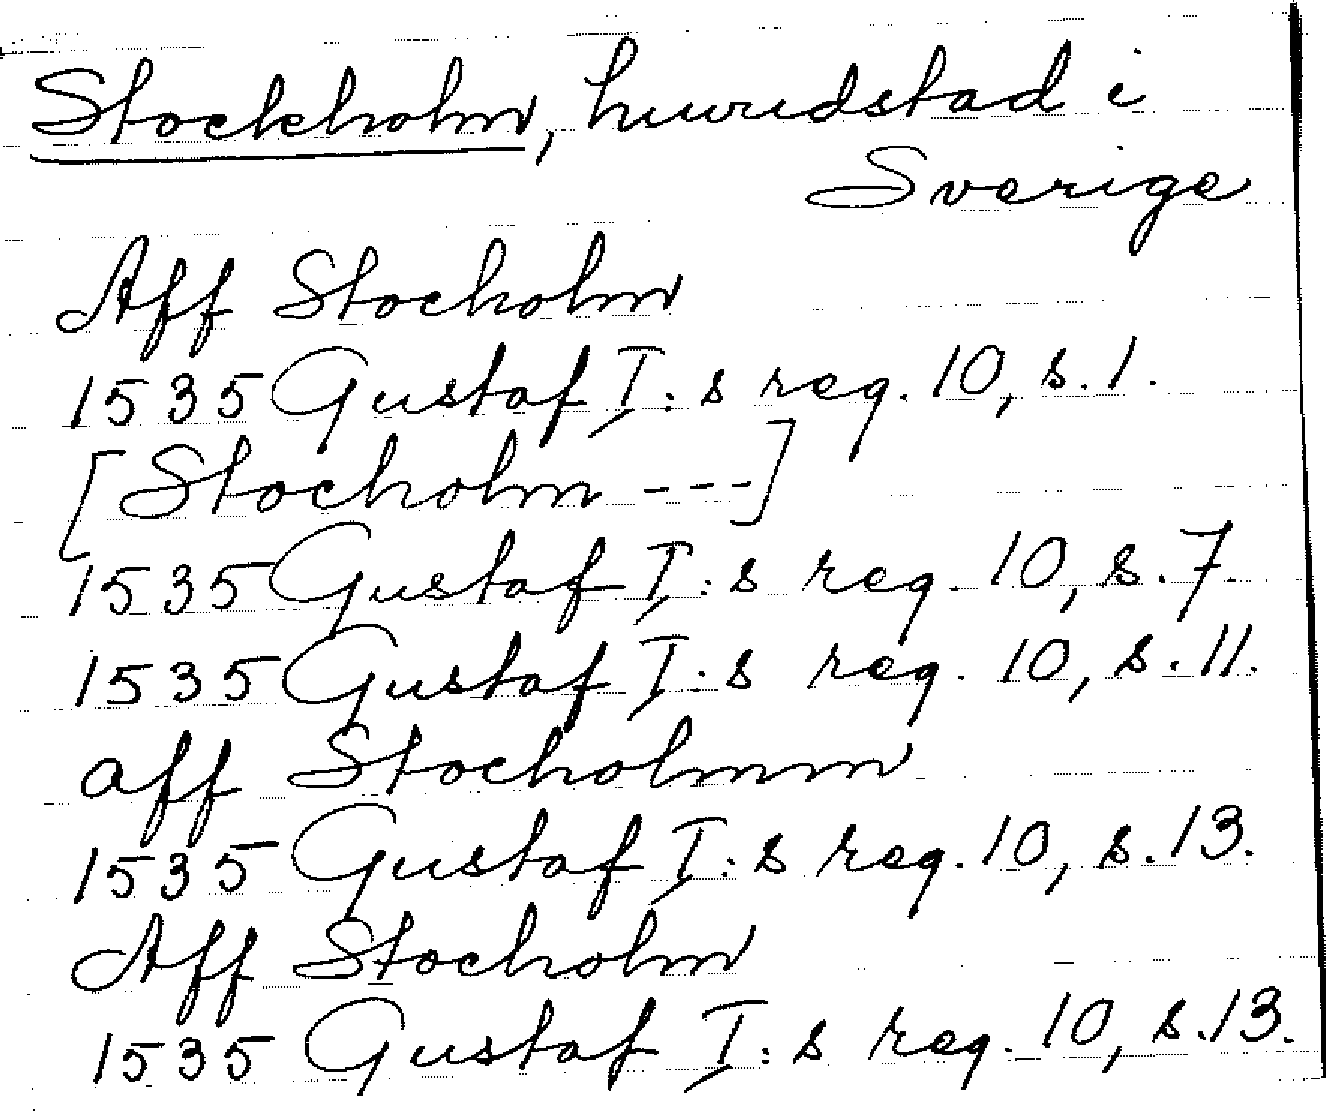 Stockholm, huvudstad i
Sverige
Aff Stocholm
1535 Gustaf I:s reg. 10, s. 1.
[Stocholm ---]
1535 Gustaf I:s reg. 10, s. 7
1535 Gustaf I:s reg. 10, s. 11.
aff Stocholmm
1535 Gustaf I:s reg. 10, s. 13.
Aff Stocholm
1535 Gustaf I:s reg. 10, s. 13.